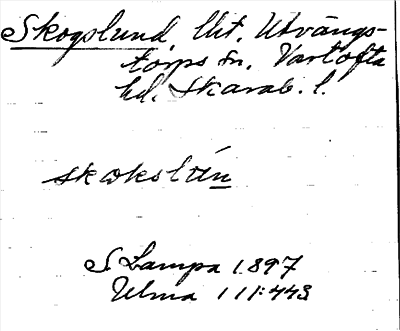 Skogslund lht. Utvängs-
torps sn. Vartofta
hd. Skarab. l.
skokslun
S. Lampa 1897
Ulma 111:443